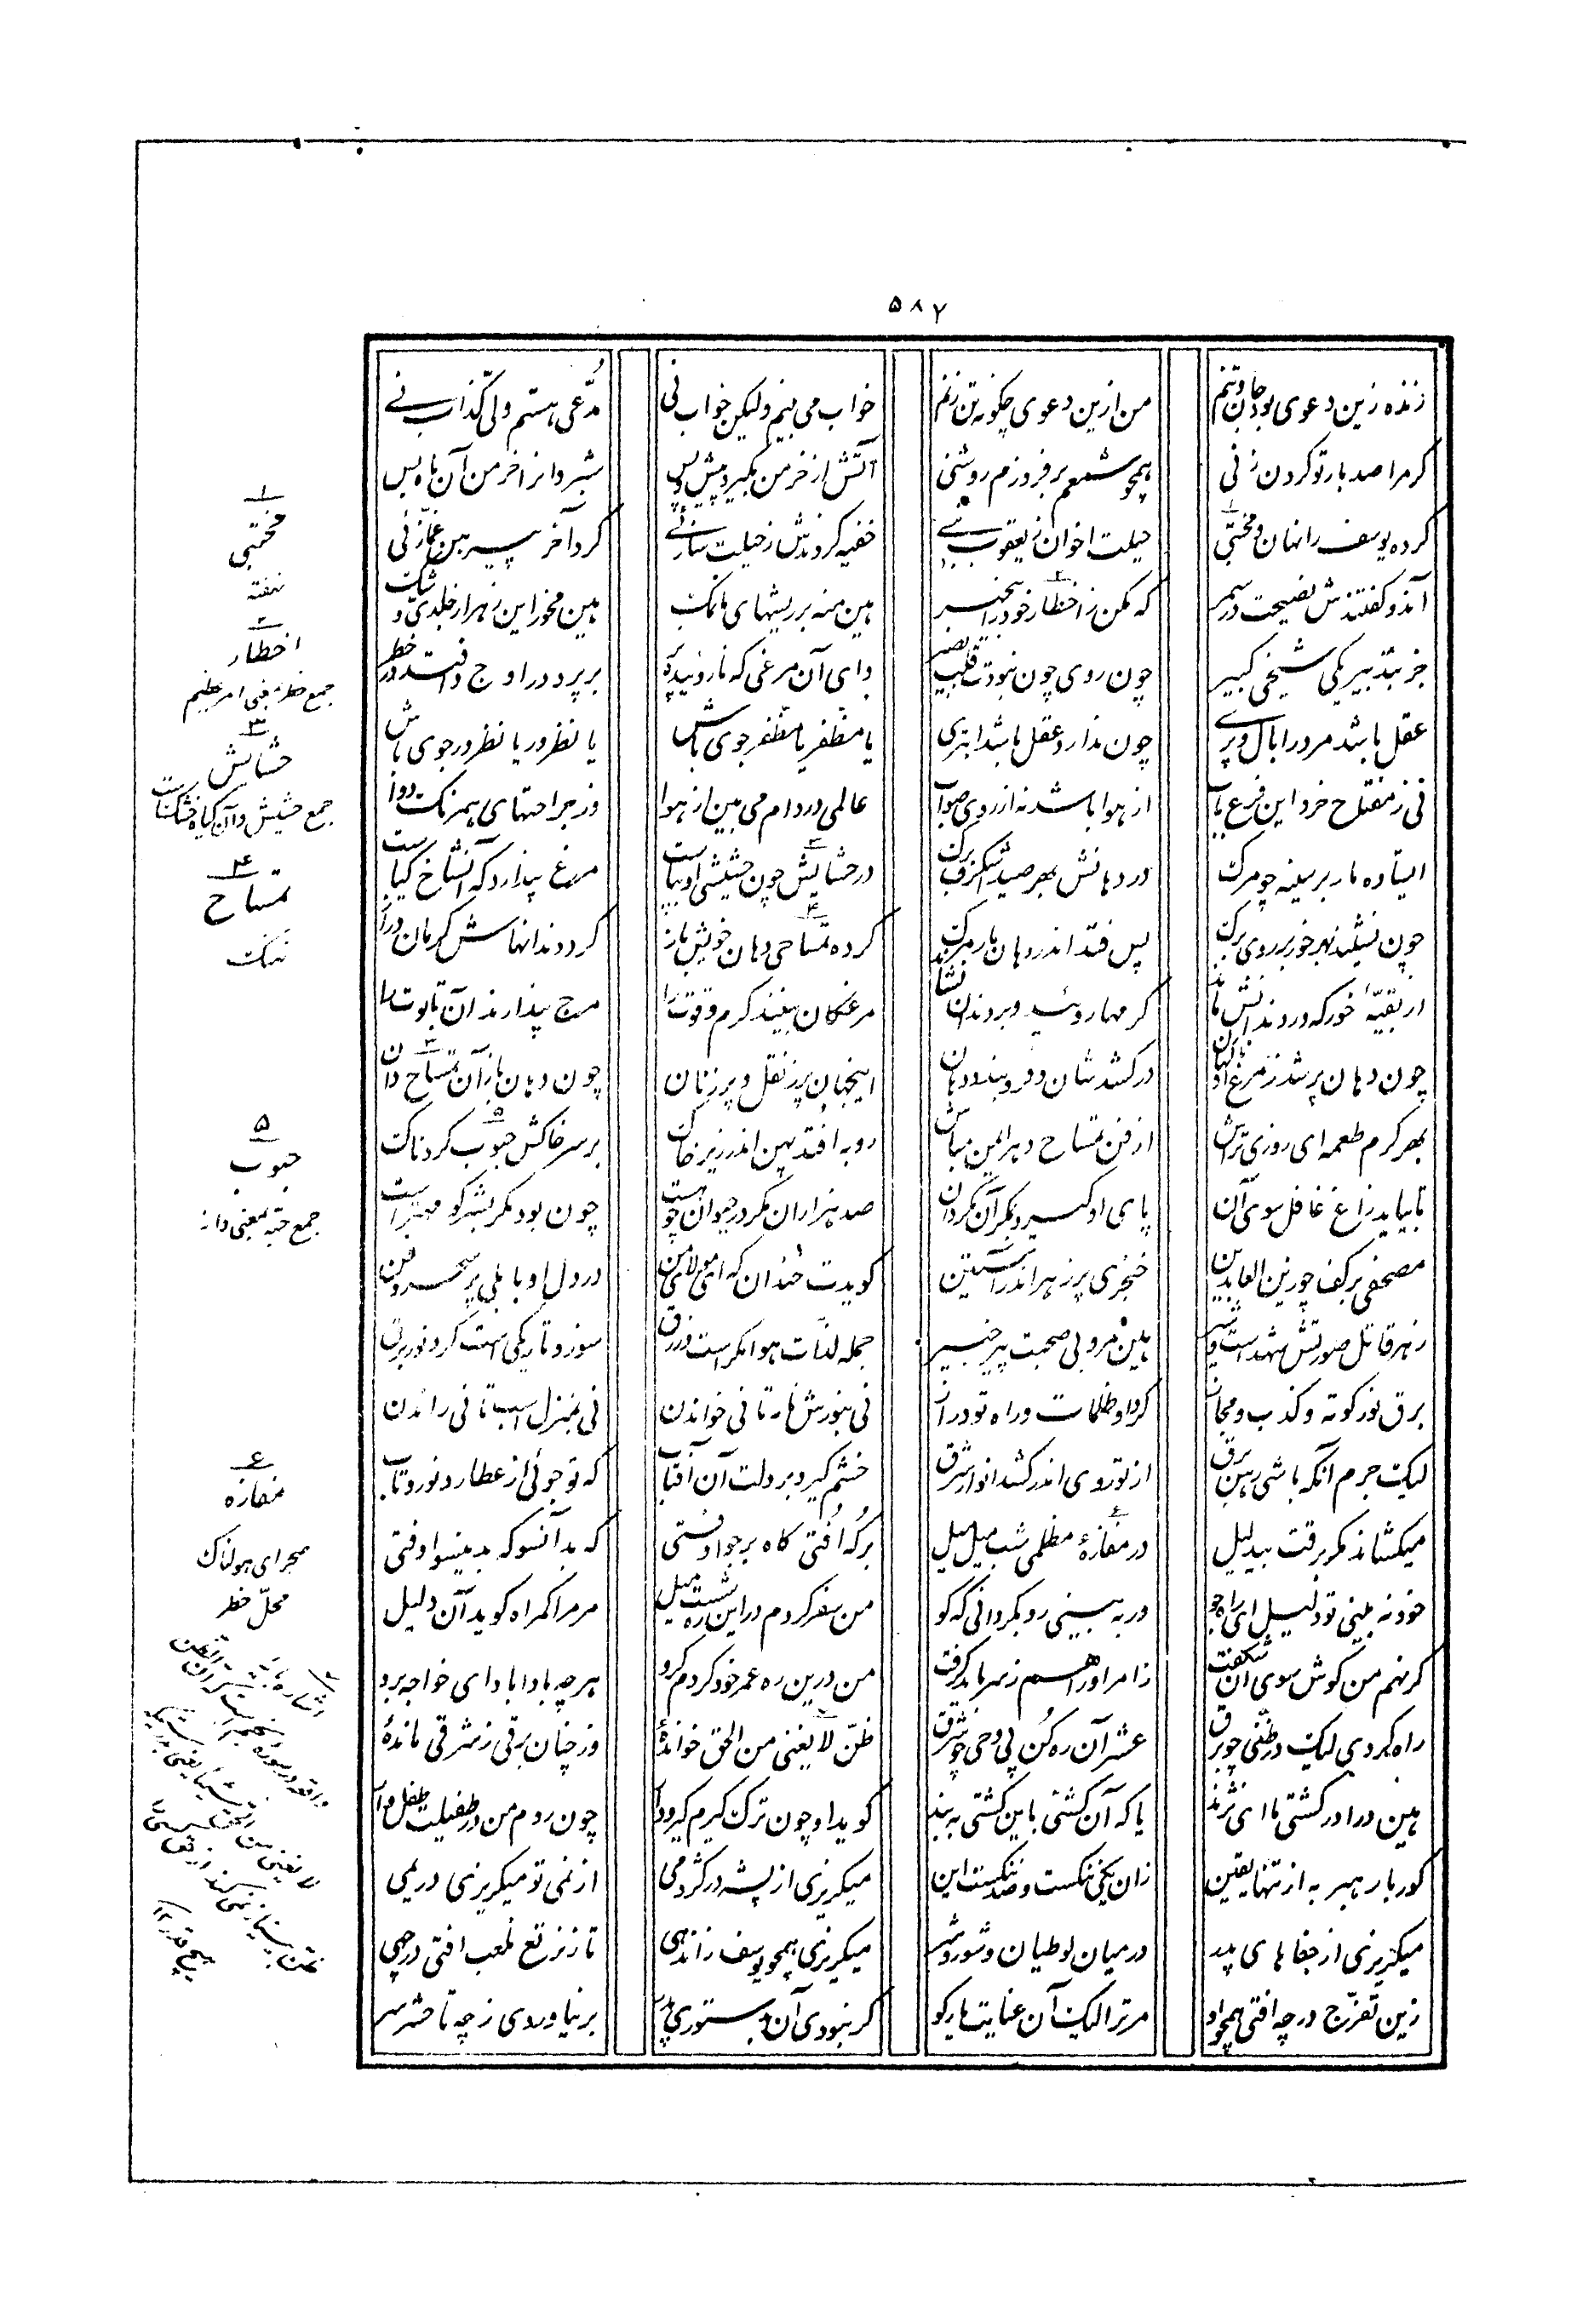 ۵۸۷
زنده زین دعوی بود جان و تنم من ازین دعوی چکونه تن زنم خواب می بینم ولیکن خواب نی مدّعی هستم ولی کذّاب نی
کر مرا صد بار تو کردن زنی همچو شمعم بر فروزم روشنی آتش ار خرمن بکیرد پیش و پس شبروانرا خرمن آن ماه بس
کرده یوسف را نهان و مختبی حیلت اخوان ز یعقوب نبی خفیه کردندش ز حیلت سازئی کرد آخر پیرهن غمّازئی
آمد و کفتندش نصیحت در سمر که مکن ز اخطار خود را بیخبر هین منه بر ریشهای ما نمک هین مخور این زهر از جلدی و شک
جز بتدبیر یکی شیخی کبیر چون روی چون نبودت قلب بصیر وای آن مرغی که ناروئیده پر بر پرد در اوج و افتد در خطر
عقل باشد مرد را بال و پری چون ندارد عقل باشد ابتری یا مظفر یا مظفر جوی باش یا نظرور یا نظرور جوی باش
نی ز مفتاح خرد این قرع باب از هوا باشد نه از روی صواب عالمی در دام می بین از هوا وز جراحتهای همرنک دوا
ایستاده مار بر سینه چو مرک در دهانش بهر صید اشکرف برک در حشایش چون حشیشی او بپاست مرغ پندارد که آنشاخ کیاست
چون نشیند بهر خور بر روی برک پس فتد اندر دهان مار مرک کرده تمساحی دهان خویش باز کرد دندانهاش کرمان دراز
از بقیّه خور که در دندانش ماند کرمها روئید و بر دندان نشاند مرغکان بینند کرم و قوت را مرج پندارند آن تابوت را
چون دهان پر شد ز مرغ او ناکهان در کشد شان و فرو بندد دهان اینجهان پر ز نقل و پر ز نان چون دهان باز آن تمساح دان
بهر کرم طعمه ای روزی تراش از فن تمساح دهر ایمن مباش روبه افتد پهن اندر زیر خاک بر سر خاکش حبوب کردناک
تا بیاید زاغ غافل سوی آن پای او کیرد بمکر آن مکردان صد هزاران مکر در حیوان چو هست چون بود مکر بشر کو مهتر است
مصحفی بر کف چو زین العابدین خنجری پر زهر اندر آستین کویدت خندان که ای مولای من در دل او بابلی پر سحر و فن
زهر قاتل صورتش شهد است و شیر هین مرو بی صحبت پیر خبیر جمله لذّات هوا مکر است و زرق سوز و تاریکی است کرد نور برق
برق نور کوته و کذب و مجاز کرد او ظلمات و راه تو دراز نی بنورش نامه تانی خواندن نی بمنزل اسب تانی راندن
لیک جرم آنکه باشی رهن برق از تو روی اندر کشد انوار شرق خشم کیرد بر دلت آن آفتاب که تو جوئی از عطارد نور و تاب
میکشاند مکر برقت بیدلیل در مفازهٔ مظلمی شب میل میل بر که افتی کاه بر جو اوفتی که بدآنسو که بدینسو اوفتی
خود نه بینی تو دلیل ای راه جو ور به بینی رو بکردانی که کو من سفر کردم در این ره شست میل مر مرا کمراه کوید آن دلیل
کر نهم من کوش سوی آن شکفت ز امر او راهم ز سر باید کرفت من درین ره عمر خود کردم کرو هر چه بادا باد ای خواجه برو
راه کردی لیک در ظنّی چو برق عشر آن ره کن پی وحی چو شرق ظنّ لا یغنی من الحق خوانده‌ٔ وز چنان برقی ز شرقی مانده‌ٔ
هین درا در کشتی ما ای نژند یا که آن کشتی باین کشتی به بند کوید او چون ترک کیرم کیر و دار چون روم من در طفیلت طفل وار
کور با رهبر به از تنها یقین زان یکی ننکست و صد ننکست این میکریزی از پشه در کژدمی از نمی تو میکریزی در یمی
میکریزی از جفاهای پدر در میان لوطیان و شور و شر میکریزی همچو یوسف ز اندهی تا ز نرتع نلعب افتی در چهی
زین تفرّج در چه افتی همچو او مر ترا لیک آن عنایت یار کو کر نبودی آن بدستوری پدر بر نیاوردی ز چه تا حشر سر
۱
مختبی
نهفته
۲
اخطار
جمع خطر یعنی امر عظیم
۳
حشایش
جمع حشیش و آن کیاه خشکست
۴
تمساح
نهنک
۵
حبوب
جمع حبّه بمعنی دانه
۶
مفازه
صحرای هولناک
محلّ خطر